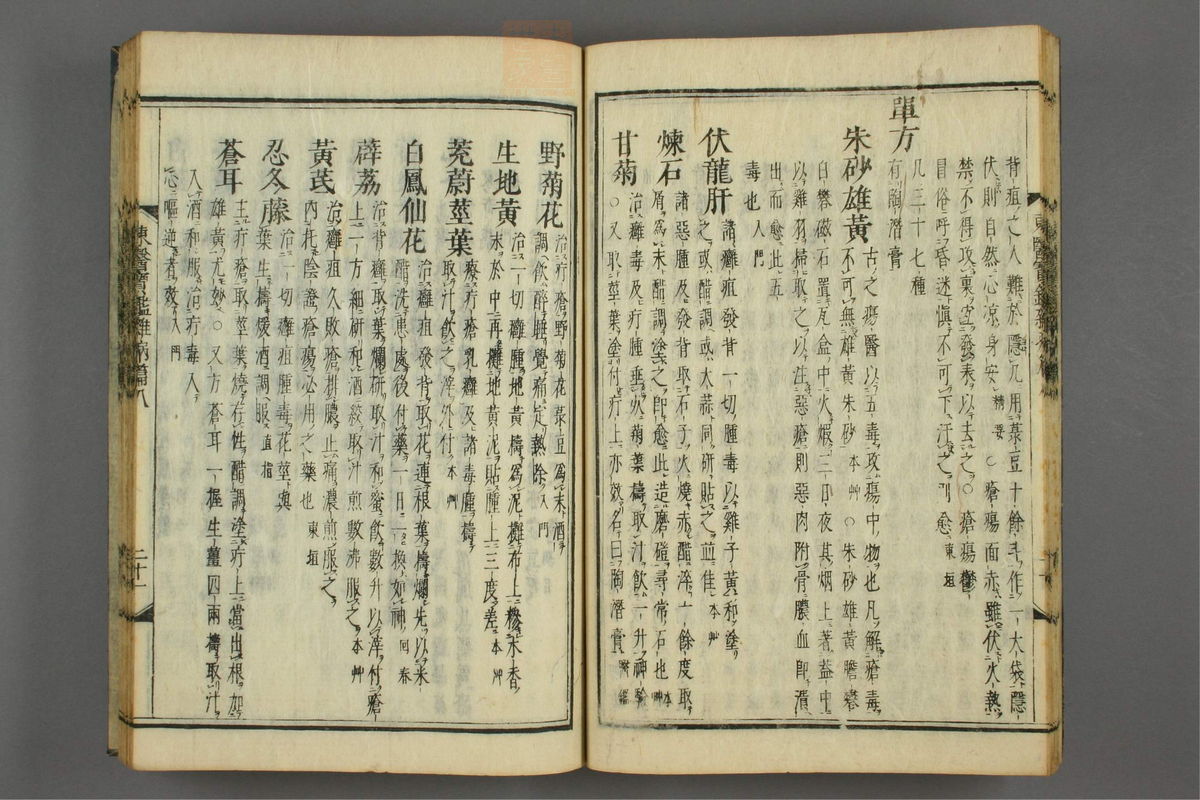 背疽之人難於隱几用菉豆十餘斗作一大袋隱
伏則自然心凉身安精要○瘡瘍面赤雖伏火熱
禁不得攻裏宜發表以去之○瘡瘍鬱
冒俗呼昏迷愼不可下汗之則愈東垣
單方
凡三十七種
有陶潛膏
朱砂雄黃
古之瘍醫以五毒攻瘍中物也凡解瘡毒
不可無雄黃朱砂本艸○朱砂雄黃膽礬
白礬磁石置瓦盒中火煆三日夜其烟上著盖中
以雞羽掃取之以注惡瘡則惡肉附骨膿血卽潰
出而愈此五
毒也入門
伏龍肝
諸癰疽發背一切腫毒以雞子黃和塗
之或醋調或大蒜同研貼之並佳本艸
煉石
諸惡腫及發背取石子火燒赤醋淬十餘度取
屑爲末醋調塗之卽愈此造磨磑尋常石也本艸
甘菊
治癰毒及疔腫垂死菊葉擣取汁飮一升神驗
○又取莖葉塗付疔上亦效名曰陶潛膏醫鑑
野菊花
治疔瘡野菊花菉豆爲末酒
調飮醉睡覺痛定熱除入門
生地黃
治一切癰腫地黃擣爲泥攤布上糝木香
末於中再攤地黃泥貼腫上三度差本艸
茺蔚莖葉
療疔瘡乳癰及諸毒腫擣
取汁飮之滓外付本艸
白鳳仙花
治癰疽發背取花連根葉擣爛先以米
醋洗患處後付藥一日一換如神回春
薜荔
治背癰取葉爛硏取汁和蜜飮數升以滓付瘡
上一方細硏和酒絞取汁煎數沸服之本艸
黃芪
治癰疽久敗瘡排膿止痛濃煎服之
內托陰證瘡瘍必用之藥也東垣
忍冬藤
治一切癰疽腫毒花莖與
葉生擣煖酒調服直指
蒼耳
主疔瘡取莖葉燒存性醋調塗疔上當出根加
雄黃尤妙○又方蒼耳一握生薑四兩擣取汁
入酒和服治疔毒入
心嘔逆者效入門
東醫寶鑑雜病篇八
二十一